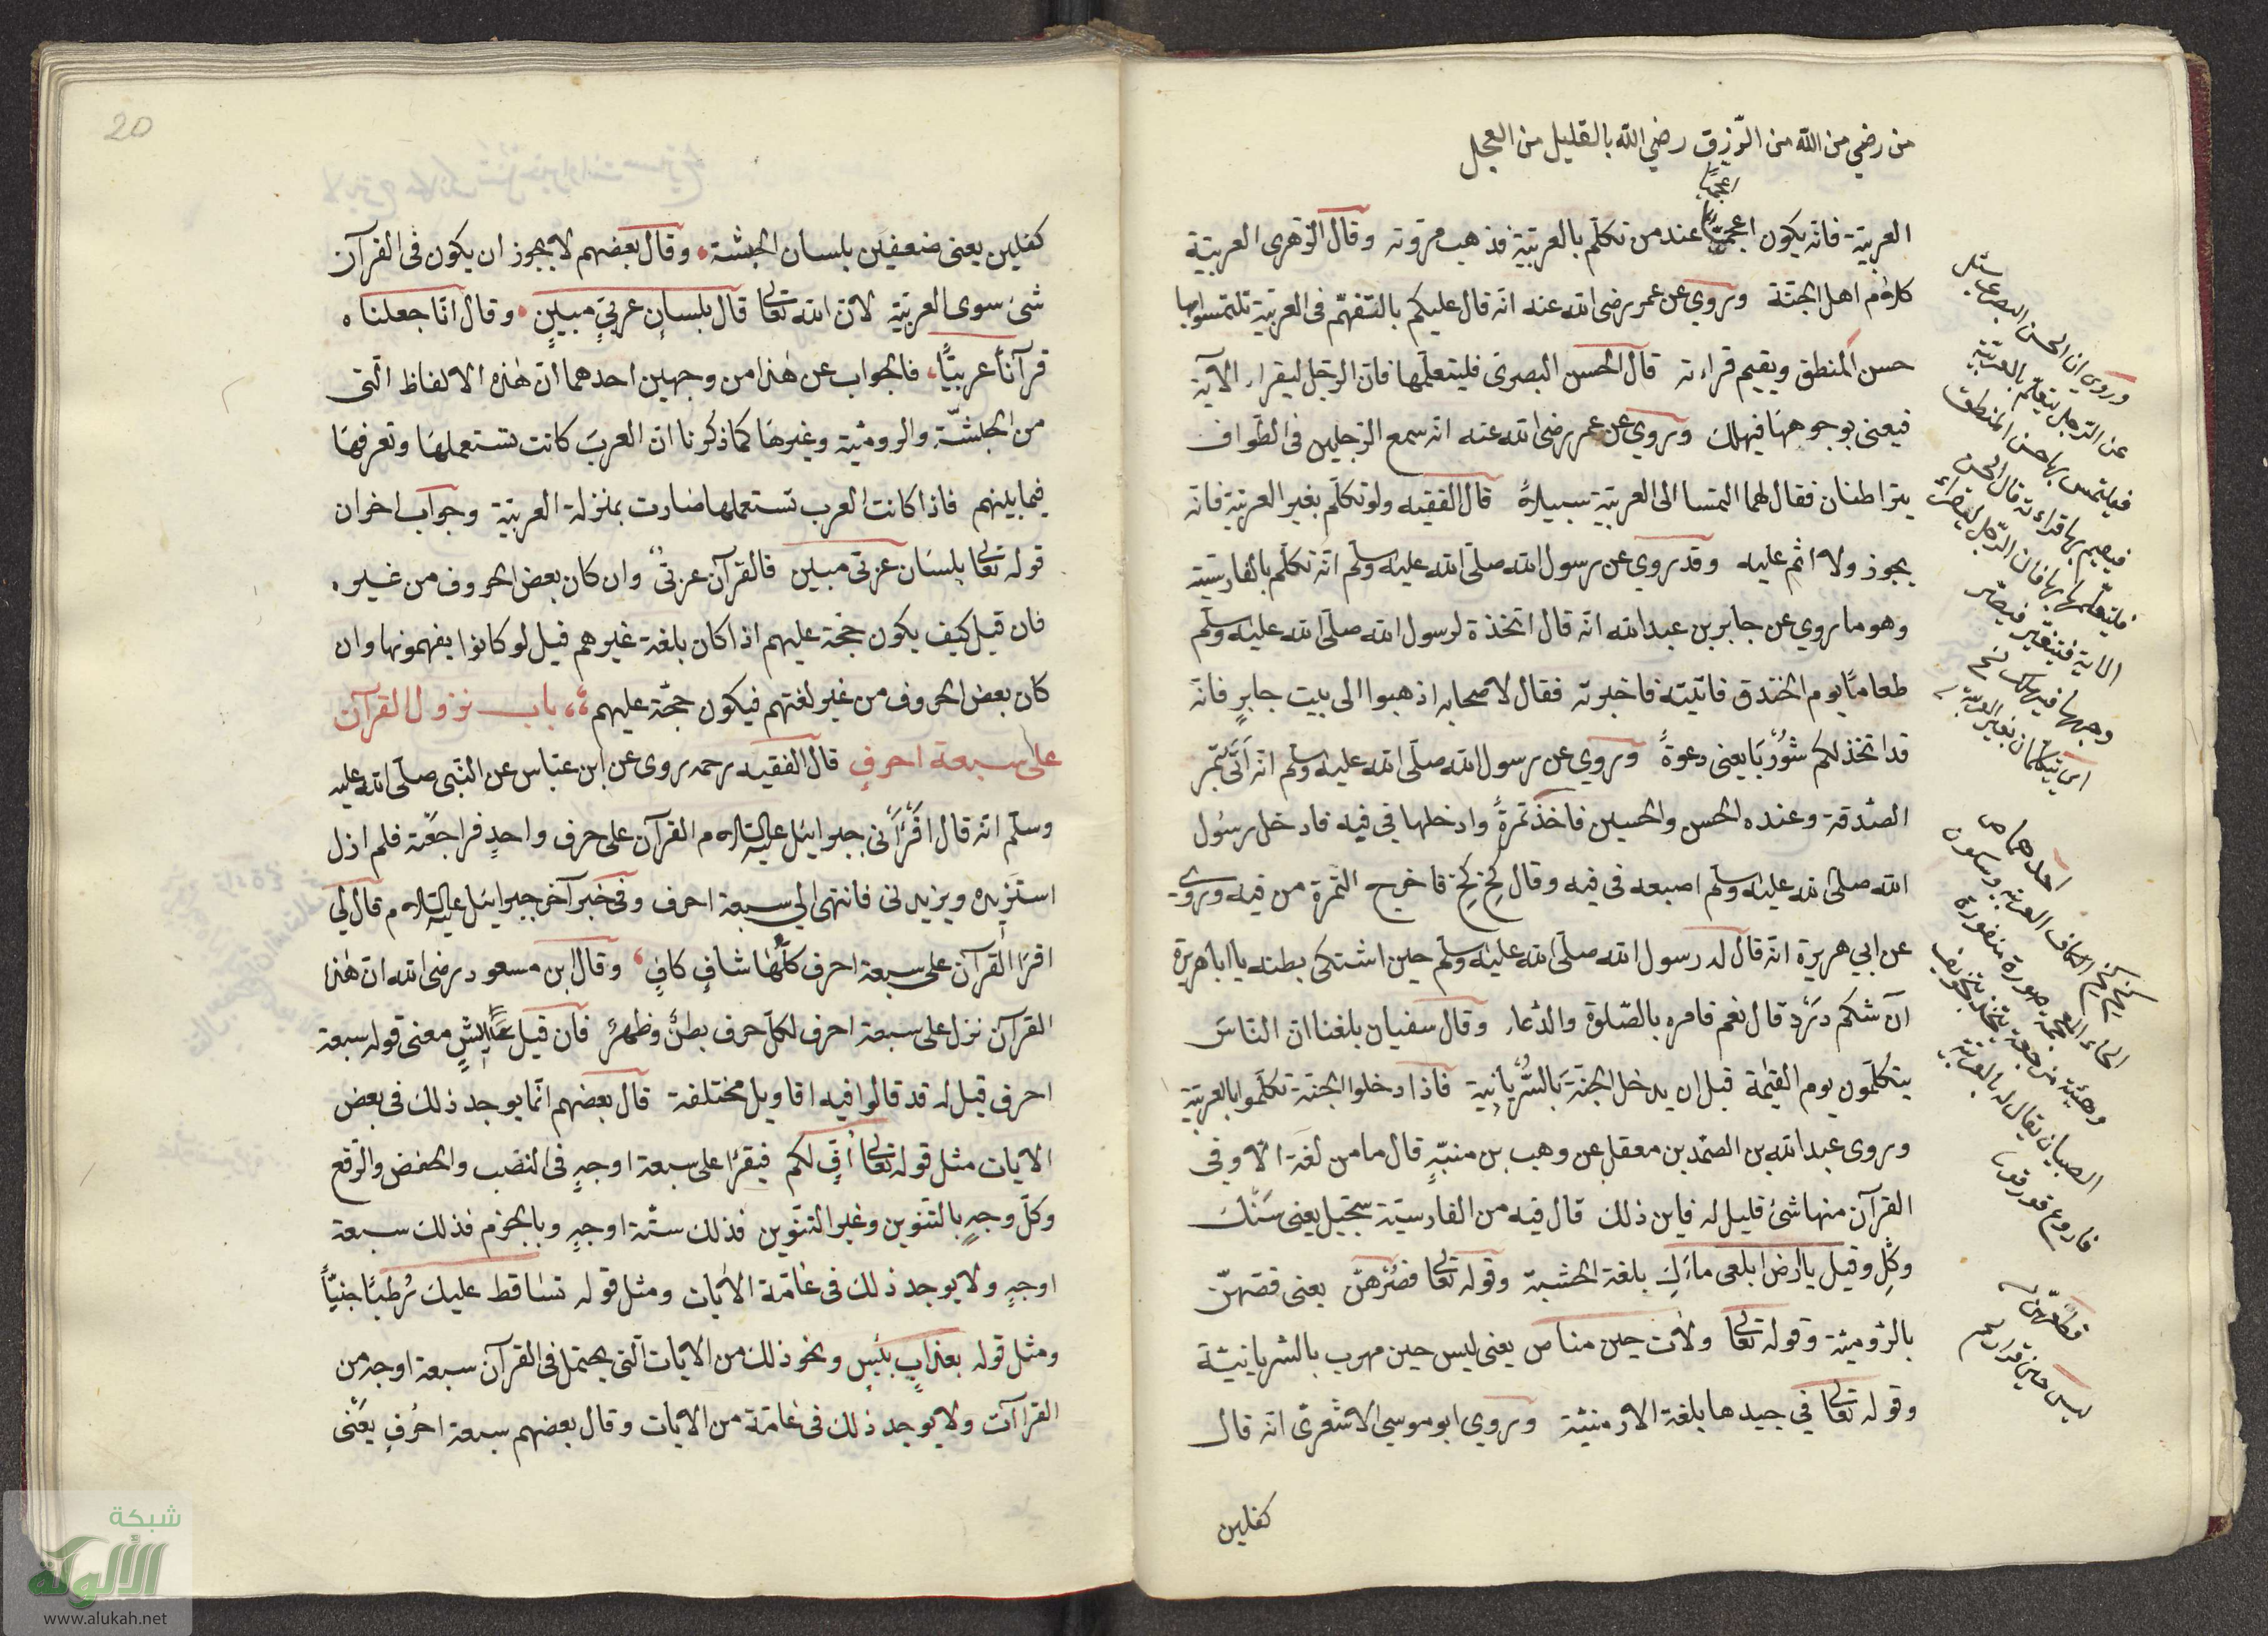 من رضي من الله من الرّزق رضي الله بالقليل من العمل
اعجميّا
العربيّة فانه يكون اعجميّا عند من تكلّم بالعربيّة فذهب مروته وقال الزهرى العربيّة
كلام اهل الجنّة وروي عن عمر رضى الله عنه انّه قال عليكم بالتفهّم فى العربيّة تلتمسوا بها
حسن المنطق ويقيم قراءته قال الحسن البصرىّ فليتعلّمها فانّ الرّجل ليقراء الآية
فيعنى بوجوهها فيهلك وروي عن عمر رضى الله عنه انّه سمع الرّجلين فى الطّواف
يتراطنان فقال لهما التمسا الى العربيّة سبيلاً قال الفقيه ولو تكلّم بغير العربيّة فانّه
يجوز ولا اثم عليه وقد روي عن رسول الله صلّى الله عليه وسلّم انّه تكلّم بالفارسيّة
وهو ما روي عن جابر بن عبد الله انّه قال اتّخذة لرسول الله صلّى الله عليه وسلّم
طعامًا يوم الخندق فاتيته فاخبرته فقال لاصحابه اذهبوا الى بيت جابرٍ فانّه
قد اتّخذ لكم شُورْبَا يعنى دعوةً وروي عن رسول الله صلّى الله عليه وسلّم انّه اَتَى بتمر
الصّدقة وعنده الحسن والحسين فاخذ تمرةً وادخلها في فيه فادخل رسول
الله صلّى الله عليه وسلّم اصبعه فى فيه وقال كِخْ كِخْ فاخرج التمرة من فيه وروي
عن ابي هريرة انّه قال له رسول الله صلّى الله عليه وسلّم حين اشتكى بطنه يا ابا هريرة
آن شكم دَرْد قال نعم فامره بالصّلوة والدّعاء وقال سفيان بلغنا انّ النّاسَ
يتكلّمون يوم القيمة قبل ان يدخل الجنّة بالسُّرْيانية فاذا دخلوا الجنّة تكلّموا بالعربيّة
وروى عبد الله بن الصّمد بن معقل عن وهب بن منبّهٍ قال ما من لغة الا وفي
القرآن منها شئ قليل له فاين ذلك قال فيه من الفارسيّة سجّيل يعنى سَنْك
وكِل وقيل يا ارض ابلعى ماءَكِ بلغة الحبشيّة وقوله تعالى فصُرْهنّ يعنى قطّعهنّ
بالرّوميّة وقوله تعالى ولات حين مناص يعنى ليس حين مهرب بالسّريانيّة
وقوله تعالى في جيدها بلغة الارمنيّة وروي ابو موسي الاشعرىّ انّه قال
كفلين
وروي ان الحسن البصرى سئل
عن الرّجل يتعلّم بالعربيّة
فيلتمس بها حسن المنطق
فيقيم بها قراءته قال الحسن
فليتعلّمها بها فان الرّجل ليقراء
الاية
وجهها فيهلك نسخ
اي يتكلّمان بغير العربيّة
احدهما
كخ كخ الكاف العربيّة وسكون
الخاء المعجمة
الصبيان يقال له بالعربيّة
قطّعهنّ
ليس حين فرار لهم
20
كفلين يعنى ضعفين بلسان الحبشة وقال بعضهم لا يجوز ان يكون فى القرآن
شئ سوى العربيّة لانّ الله تعالى قال بلسانٍ عربيّ مبينٍ وقال انّا جعلناه
قرآناً عربيّاً فالجواب عن هذا من وجهين احدهما انّ هذه الالفاظ الّتى
من الحبشّة والروميّة وغيرها كما ذكرنا انّ العربَ كانت تستعملها وتعرفها
فيما بينهم فاذا كانت العرب تستعملها صارت بمنزلة العربيّة وجواب اخر ان
قوله تعالى بلسَان عربىّ مبين فالقرآن عربىّ وان كان بعض الحروف من غيره
فان قيل كيف يكون حجّة عليهم اذا كان بلغة غيرهم قيل لو كانوا يفهمونها وان
كان بعض الحروف من غير لغتهم فيكون حجّة عليهم باب نزول القرآن
على سبعة احرفٍ قال الفقيه رحمه روى عن ابن عبّاس عن النّبى صلّى الله عليه
وسلّم انّه قال اقرأنى جبرايئل عليه السلام القرآن على حرف واحدٍ فراجعّته فلم ازل
استَزيده ويزيدنى فانتهى الي سبعة احرف وفى خبر آخر جبرايئل عليه السلام قال لي
اقرا القرآن على سبعة احرف كلّها شافٍ كافٍ وقال ابن مسعود رضى الله انّ هذا
القرآن نزل على سبعة احرف لكلّ حرف بطنٌ وظهرٌ فان قيل علي ايشٍ معنى قوله سبعة
احرف قيل له قد قالوا فيه اقاويل مختلفة قال بعضهم انّما يوجد ذلك فى بعض
الايات مثل قوله تعالى اُفٍّ لكم فيقرا على سبعة اوجهٍ فى النّصب والخفض والرّفع
وكلّ وجهٍ بالتّنوين وغير التنّوين فذلك ستّة اوجهٍ وبالجزم فذلك سبعة
اوجهٍ ولا يوجد ذلك فى عامّة الايات ومثل قوله تساقط عليك رُطبًا جنيّاً
ومثل قوله بعذابٍ بئيسٍ ونحو ذلك من الايات الّتى يحتمل فى القرآن سبعة اوجه من
القراآت ولا يوجد ذلك فى عامّة من الايات وقال بعضهم سبعة احرُفٍ يعْنى
شبكة
الألوكة
www.alukah.net